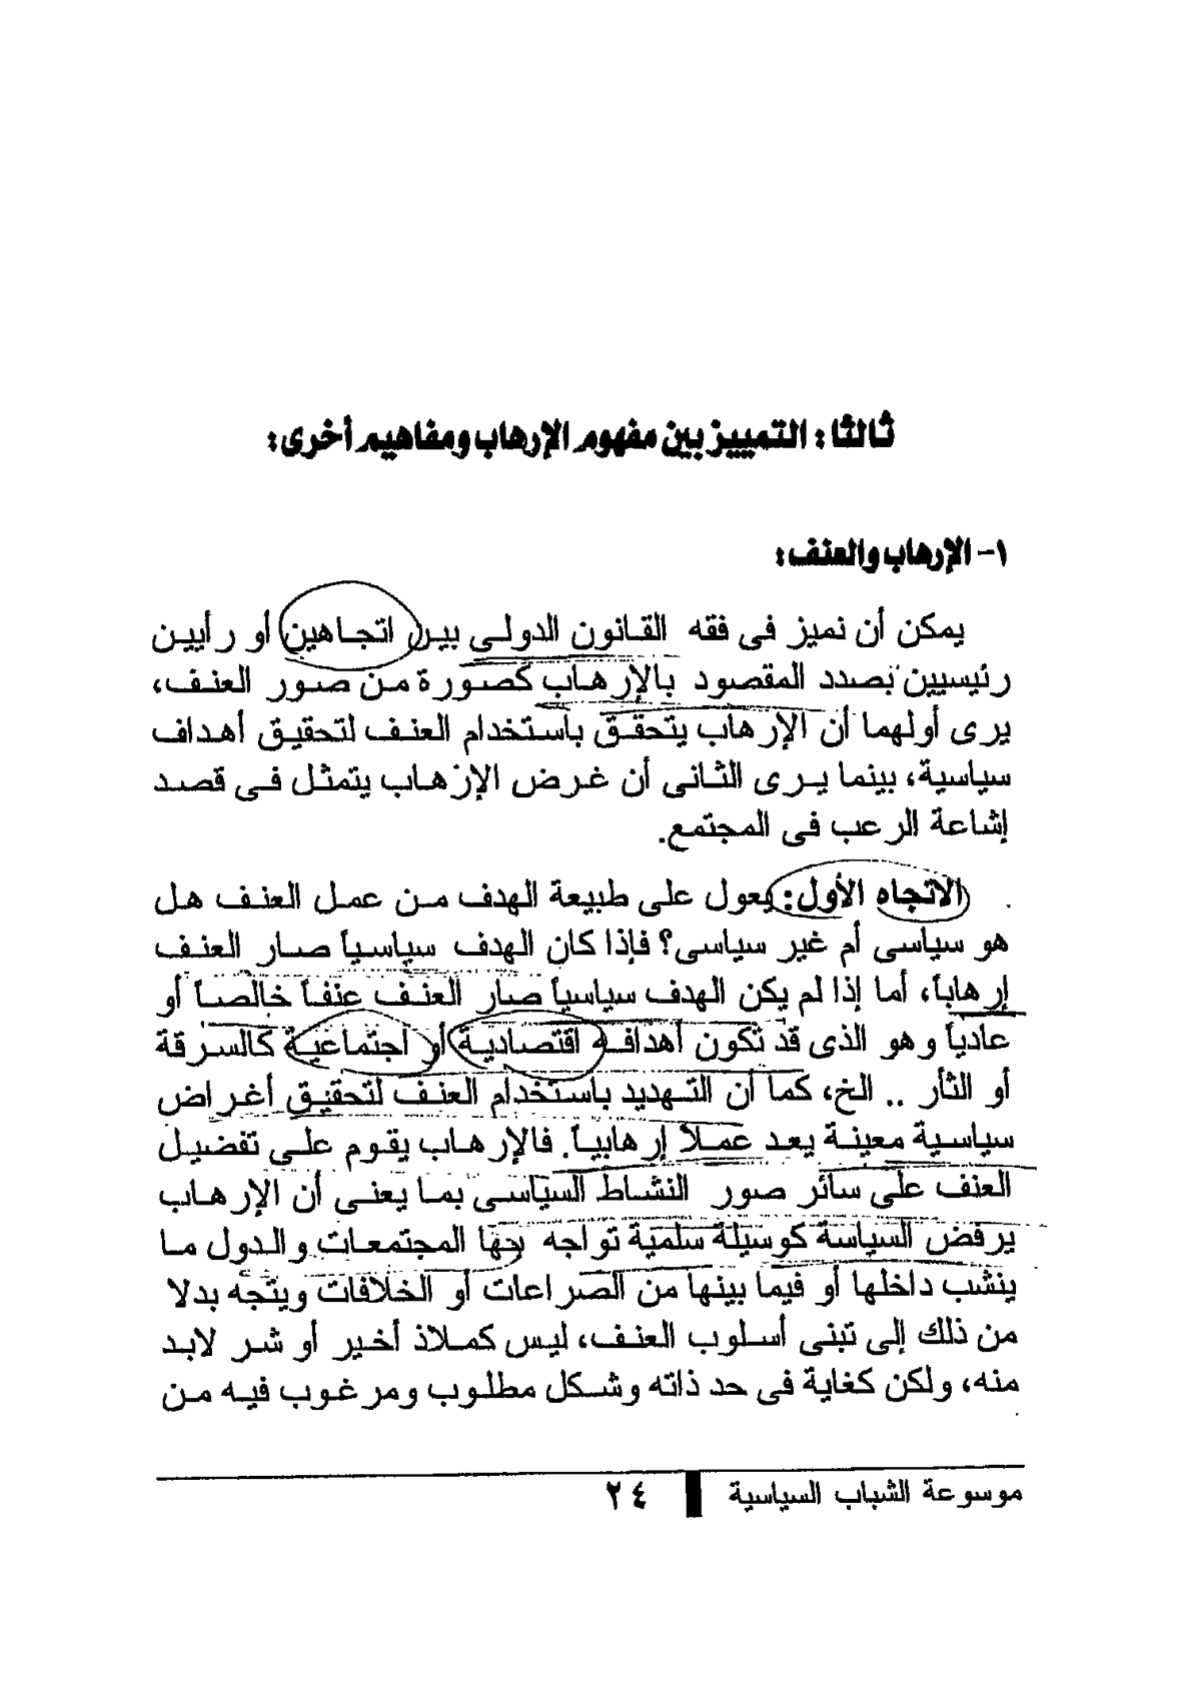 ثالثا: التمييز بين مفهوم الإرهاب ومفاهيم أخرى:
١- الإرهاب والعنف:
يمكن أن نميز فى فقه القانون الدولى بين اتجاهين أو رأيين
رئيسيين بصدد المقصود بالإرهاب كصورة من صور العنف،
يرى أولهما أن الإرهاب يتحقق باستخدام العنف لتحقيق أهداف
سياسية، بينما يرى الثانى أن غرض الإرهاب يتمثل فى قصد
إشاعة الرعب فى المجتمع.
الاتجاه الأول: يعول على طبيعة الهدف من عمل العنف هل
هو سياسى أم غير سياسى؟ فإذا كان الهدف سياسياً صار العنف
إرهاباً، أما إذا لم يكن الهدف سياسياً صار العنف عنفاً خالصاً أو
عادياً وهو الذى قد تكون أهدافه اقتصادية أو اجتماعية كالسرقة
أو الثأر .. الخ، كما أن التهديد باستخدام العنف لتحقيق أغراض
سياسية معينة يعد عملاً إرهابياً. فالإرهاب يقوم على تفضيل
العنف على سائر صور النشاط السياسى بما يعنى أن الإرهاب
يرفض السياسة كوسيلة سلمية تواجه بها المجتمعات والدول ما
ينشب داخلها أو فيما بينها من الصراعات أو الخلافات ويتجه بدلا
من ذلك إلى تبنى أسلوب العنف، ليس كملاذ أخير أو شر لابد
منه، ولكن كغاية فى حد ذاته وشكل مطلوب ومرغوب فيه من
موسوعة الشباب السياسية ٢٤